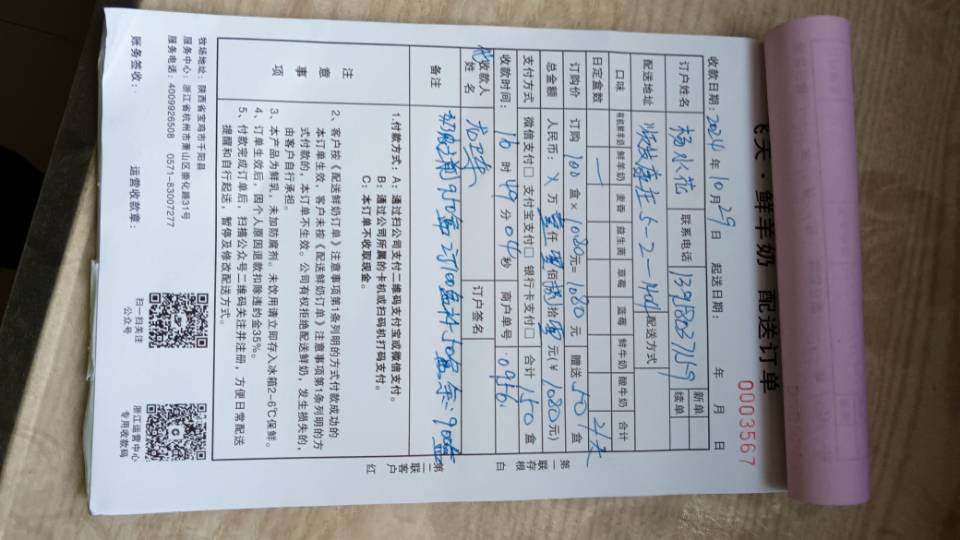 飞天·鲜羊奶 配送订单
0003567
收款日期:2024年10月29日 起送日期: 年 月 日
订户姓名 杨水花 联系电话 13958037159 新单 续单
配送地址 5-2-1401 配送方式
口味 有机鲜羊奶 鲜羊奶 麦香 益生菌 草莓 蓝莓 鲜牛奶 酸牛奶 合计
日定盒数 一
订购价 订购 100 盒× 1080元= 1080 元 赠送 50 盒
总金额 人民币: 万 壹仟 零佰 捌拾 零元(¥ 1080元)
支付方式 微信支付□ 支付宝支付□ 银行卡支付□ 合计 150 盒
收款时间: 16 时 49 分 04 秒 商户单号 0956
收款人姓名 订户签名
备注
注意事项
1.付款方式:A:通过扫公司支付二维码支付宝或微信支付。
B:通过公司所属的卡机或扫码机打码支付。
C:本订单不收取现金。
2、客户按《配送鲜奶订单》注意事项第1条列明的方式付款成功的
本订单生效,客户未按《配送鲜奶订单》注意事项第1条列明的方
式付款的,本订单不生效。公司有权拒绝配送鲜奶,发生损失的,
由客户自行承担。
3、本产品为鲜乳,未加防腐剂。未饮用请立即存入冰箱2-6℃保鲜。
4、订单生效后,因个人原因退款扣除违约金35%。
5、付款完成订单后,扫描公众号二维码关注并注册,方便日常配送
提醒和自行起送,暂停及修改配送方式。
第一联存根 白
第二联客户 红
牧场地址:陕西省宝鸡市千阳县
服务中心:浙江省杭州市萧山区崇化路31号
服务电话:4009926508 0571-83007277
扫一扫关注公众号
浙江运营中心专用收款码
账务签收: 运营收款章: